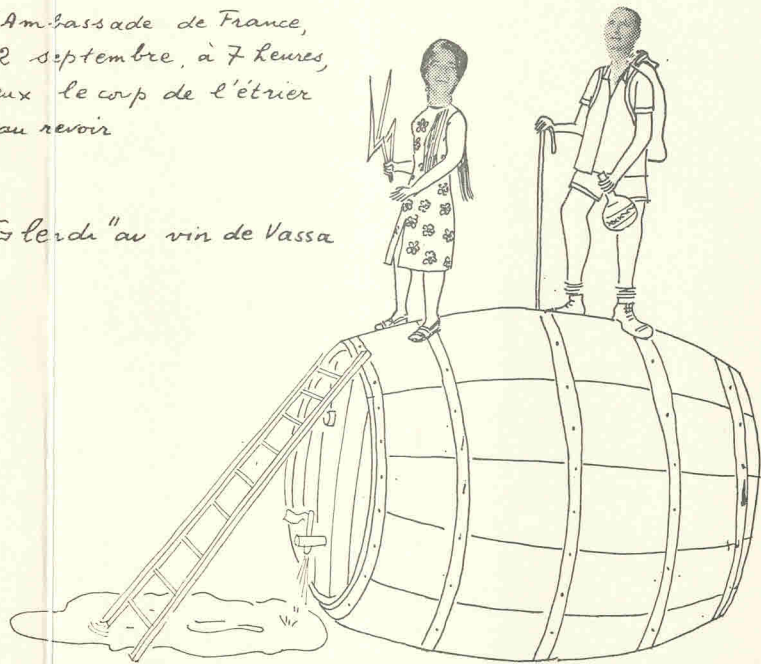 Ambassade de France,
2 septembre, à 7 heures,
eux le coup de l'étrier
au revoir
Glendi" au vin de Vassa